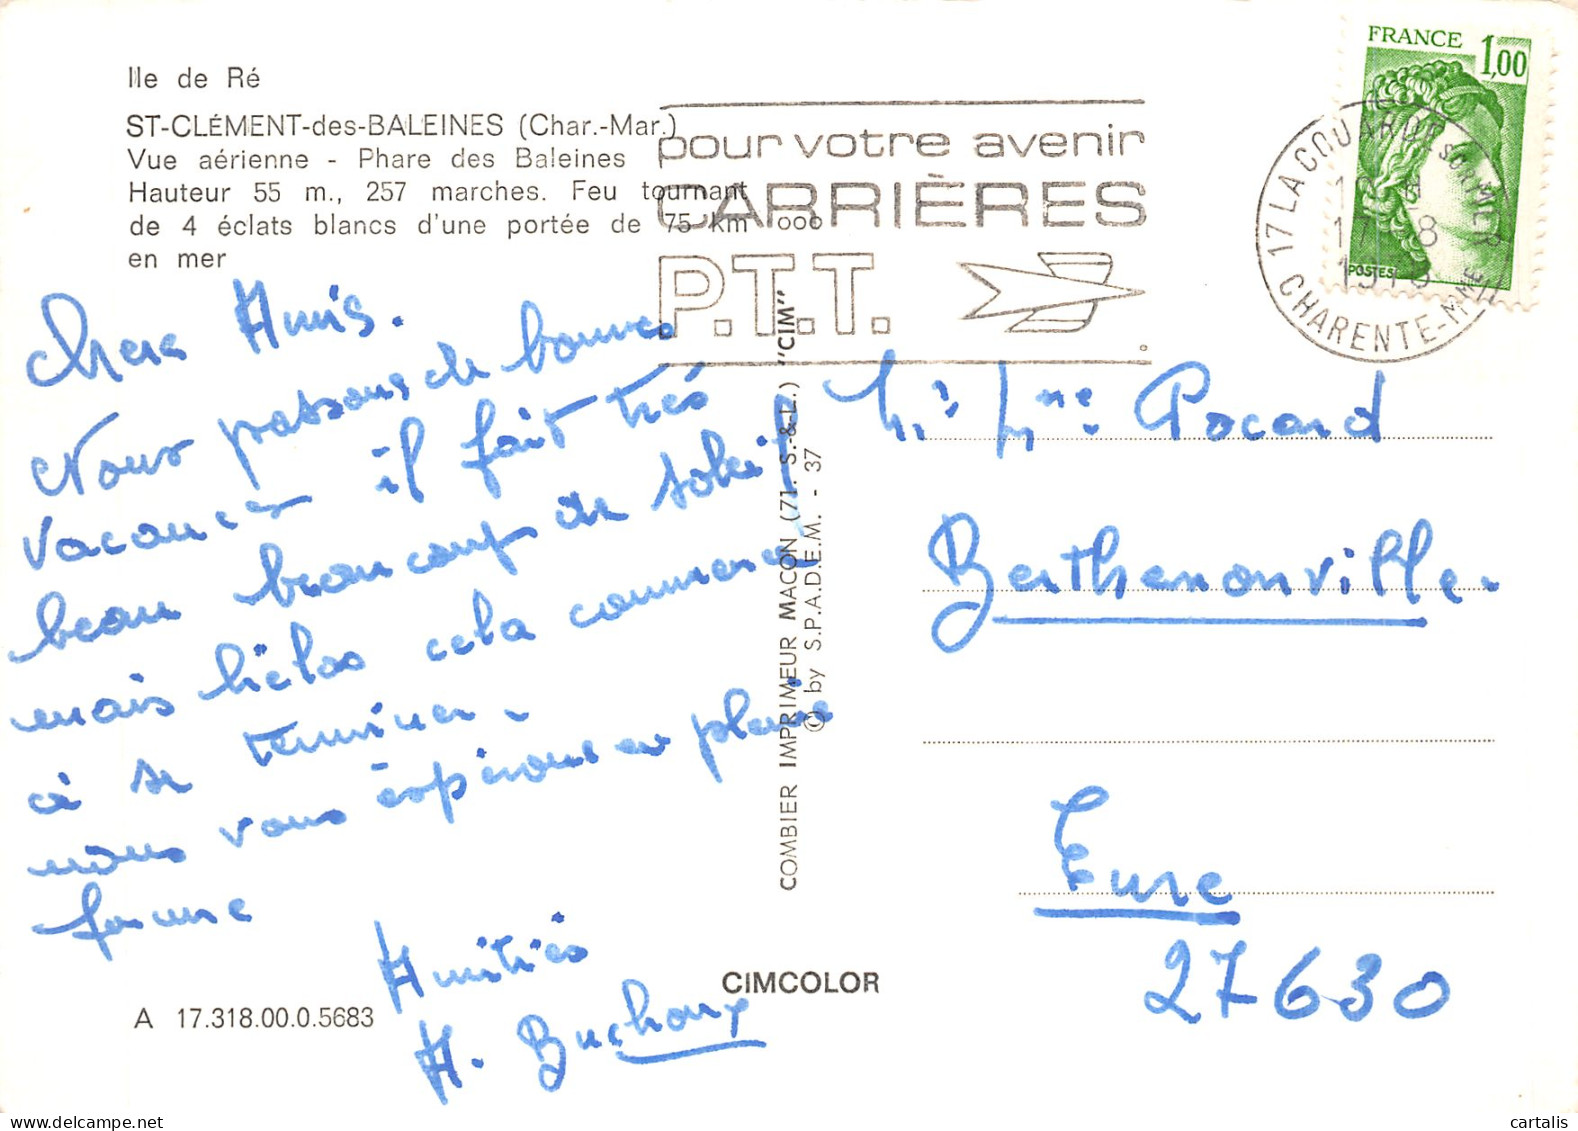 Ile de Ré
ST-CLÉMENT-des-BALEINES (Char.-Mar.)
Vue aérienne - Phare des Baleines
Hauteur 55 m., 257 marches. Feu tournant
de 4 éclats blancs d'une portée de 75 km ooo
en mer
pour votre avenir
CARRIÈRES
P.T.T.
FRANCE 1,00
POSTES
17 LA COUARDE SUR MER
17 - 8
CHARENTE-MME
Chers Amis.
Nous passons de bonnes
vacances il fait très
beau beaucoup de soleil
mais hélas cela commence
à se terminer.
nous vous espérons en pleine
forme
Amitiés
A. Buchoux
COMBIER IMPRIMEUR MACON (71. S.-&-L.) "CIM"
© by S.P.A.D.E.M. - 37
Mr. Mme Pocard
Berthenonville.
Eure
27630
CIMCOLOR
A 17.318.00.0.5683
delcampe.net
cartalis